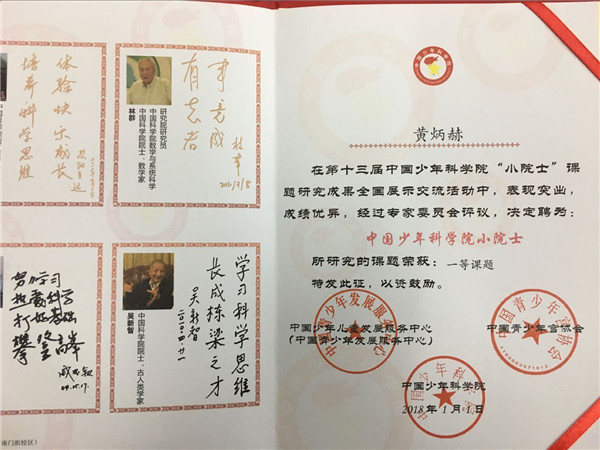 体验快乐成长
培养科学思维
有志者
事竟成
林群
林群
中国科学院院士、数学家
中国科学院数学与系统科学
研究院研究员
努力学习
热爱科学
打好基础
攀登高峰
学习科学思维
长成栋梁之才
吴新智
吴新智
中国科学院院士、古人类学家
南门街校区）
中国少年科学院
黄炳赫
在第十三届中国少年科学院“小院士”课
题研究成果全国展示交流活动中，表现突出，
成绩优异，经过专家委员会评议，决定聘为：
中国少年科学院小院士
所研究的课题荣获： 一等课题
特发此证，以资鼓励。
中国少年儿童发展服务中心
（中国青少年发展服务中心）
中国青少年宫协会
中国少年科学院
2018年1月1日
中国青少年宫协会
中国少年科学院